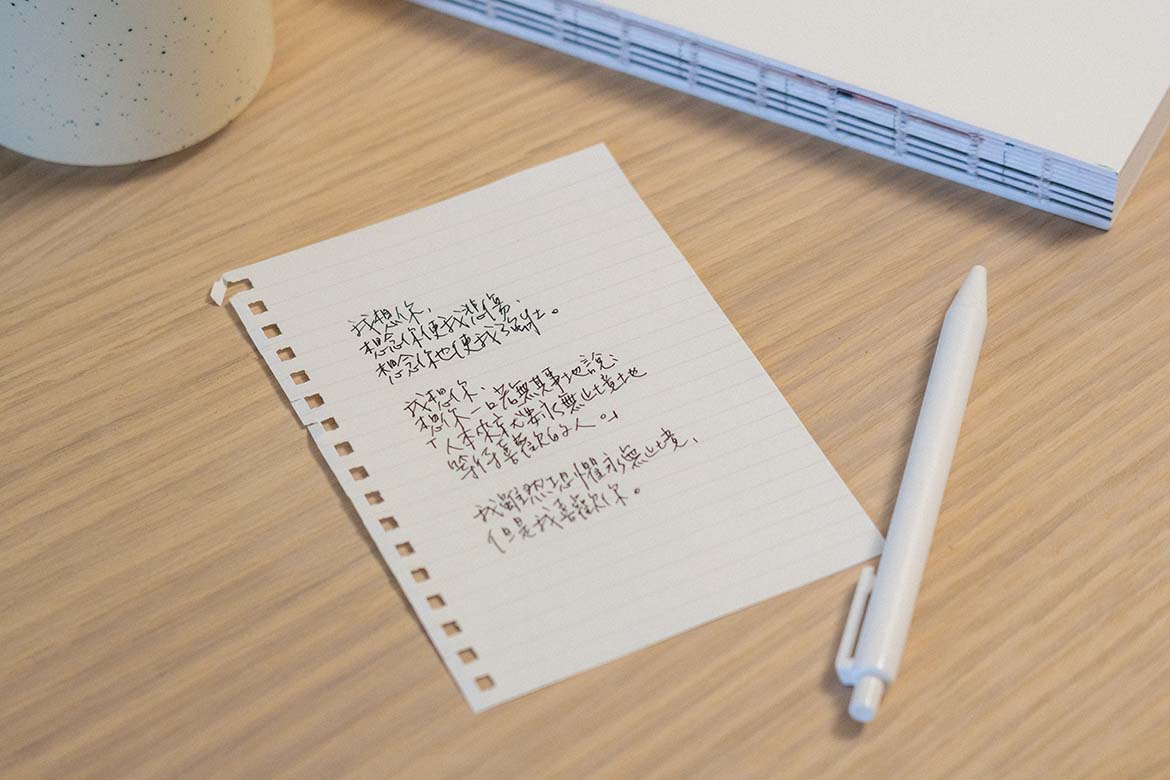 我想你,
想念你使我悲傷,
想念你也使我強壯。
我想你,
想你一口若無其事地說:
「人本來就永無止境地
等待喜歡的人。」
我雖然恐懼永無止境,
但是我喜歡你。